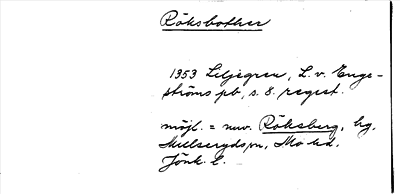 Röksbother
1353 Liljegren, L. v. Enge-
ströms pb, s. 8. regest.
möjl. = nuv. Röksberg, hg,
Mulserydsn, Mo hd.
Jönk. l.